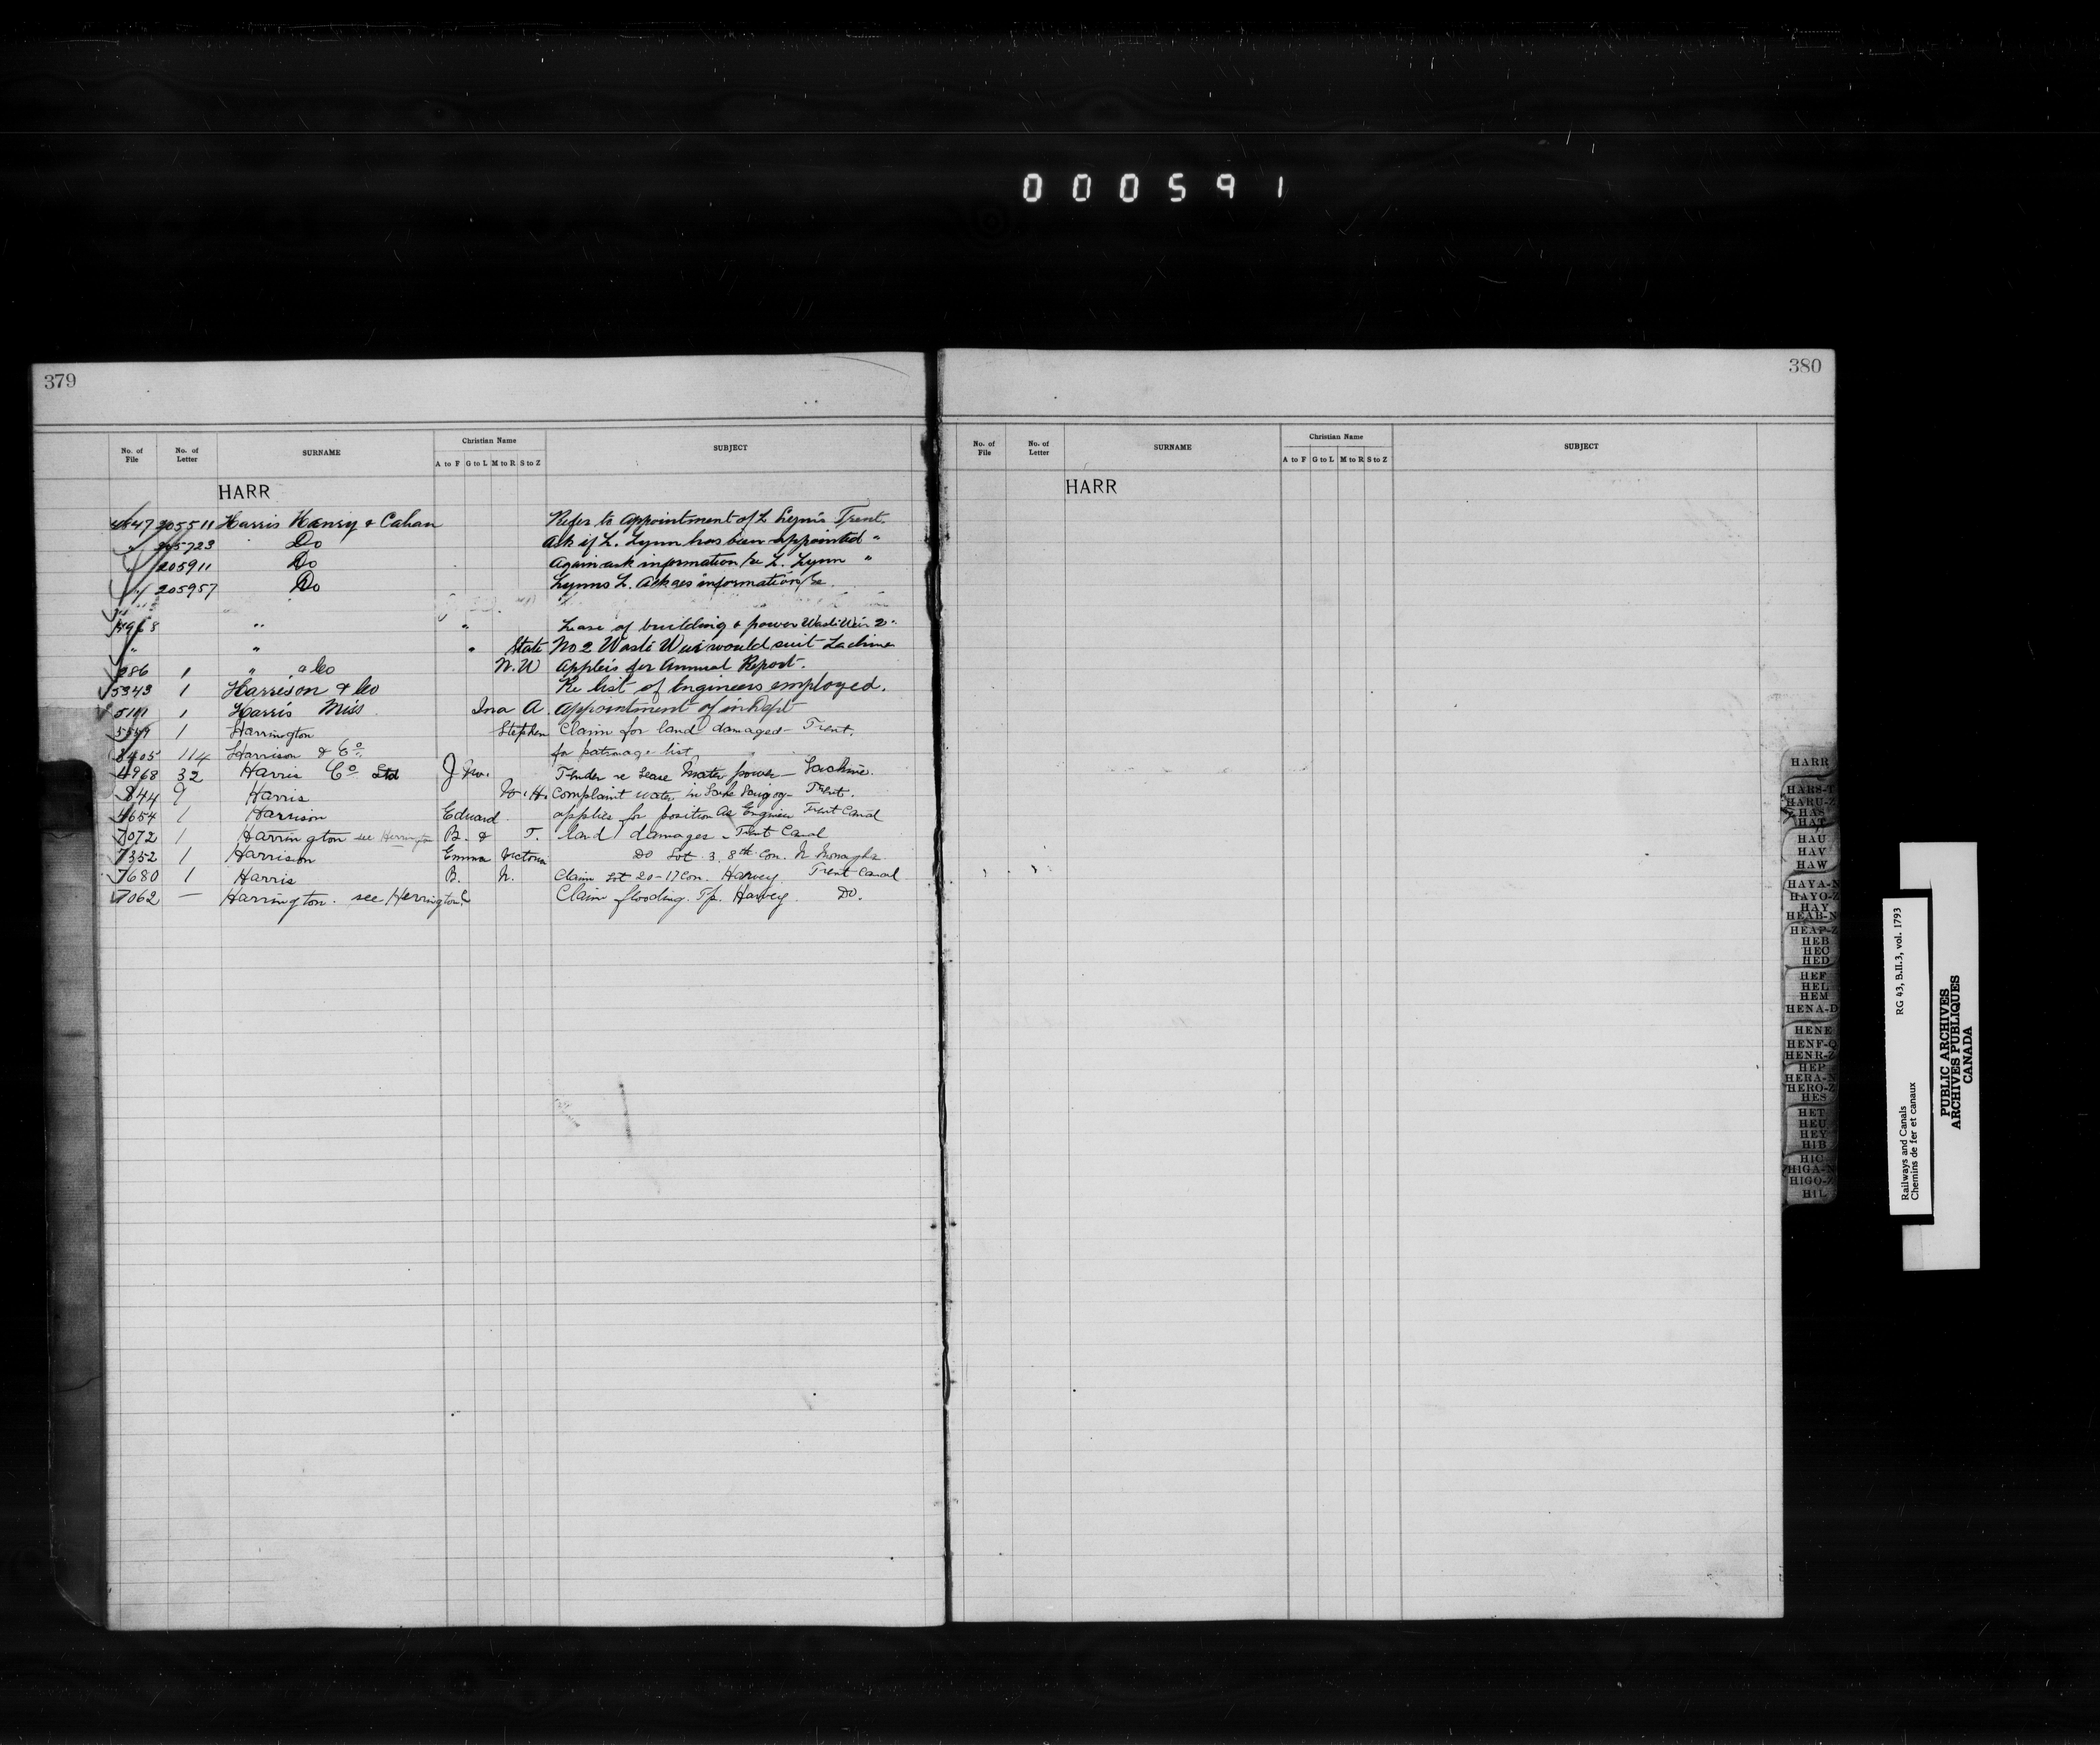 000591
379
No. of File No. of Letter SURNAME Christian Name SUBJECT
A to F G to L M to R S to Z
HARR
4547 205511 Harris Henry & Cahan Refer to Appointment of L Trent.
" 205723 Do Ask if L. Lynn has been appointed "
" 205911 Do Again ask information re L. Lynn "
" 205957 Do Lynns L. information re
4968 " " Lease of building & power Waste Weir 2 "
" " " State No 2 Waste Weir would suit Lachine
286 1 " & Co N. W Annual Report.
5343 1 Harrison & Co Re list of Engineers employed.
5191 1 Harris Miss Ina A. Appointment of in Dept
1 Harrington Stephen Claim for land damaged - Trent.
8405 114 Harrison & Co. for patronage list
4968 32 Harris Co. Ltd J Tender re Lease Water power - Lachine.
844 9 Harris W. H. Complaint water in Lake Scugog - Trent.
4654 1 Harrison Edward applies for position as Engineer Trent Canal
7072 1 Harrington see Herrington B. & T. land damages - Trent Canal
7352 1 Harrison Emma Victoria Do Lot 3. 8th Con. N Monaghan
7680 1 Harris B. N. Claim Lot 20-17 Con. Harvey Trent Canal
7062 — Harrington. see Herrington Claim flooding. Tp. Harvey Do.
380
No. of File No. of Letter SURNAME Christian Name SUBJECT
A to F G to L M to R S to Z
HARR
HARR
HARS-T
HARU-Z
HAS
HAT
HAU
HAV
HAW
HAYA-N
HAYO-Z
HAY
HEAB-N
HEAP-Z
HEB
HEC
HED
HEF
HEL
HEM
HENA-D
HENE
HENF-Q
HENR-Z
HEP
HERA-N
HERO-Z
HES
HET
HEU
HEY
HIB
HIC
HIGA-N
HIGO-Z
HIL
Railways and Canals RG 43, B.II.3, vol. 1793
Chemins de fer et canaux
PUBLIC ARCHIVES
ARCHIVES PUBLIQUES
CANADA